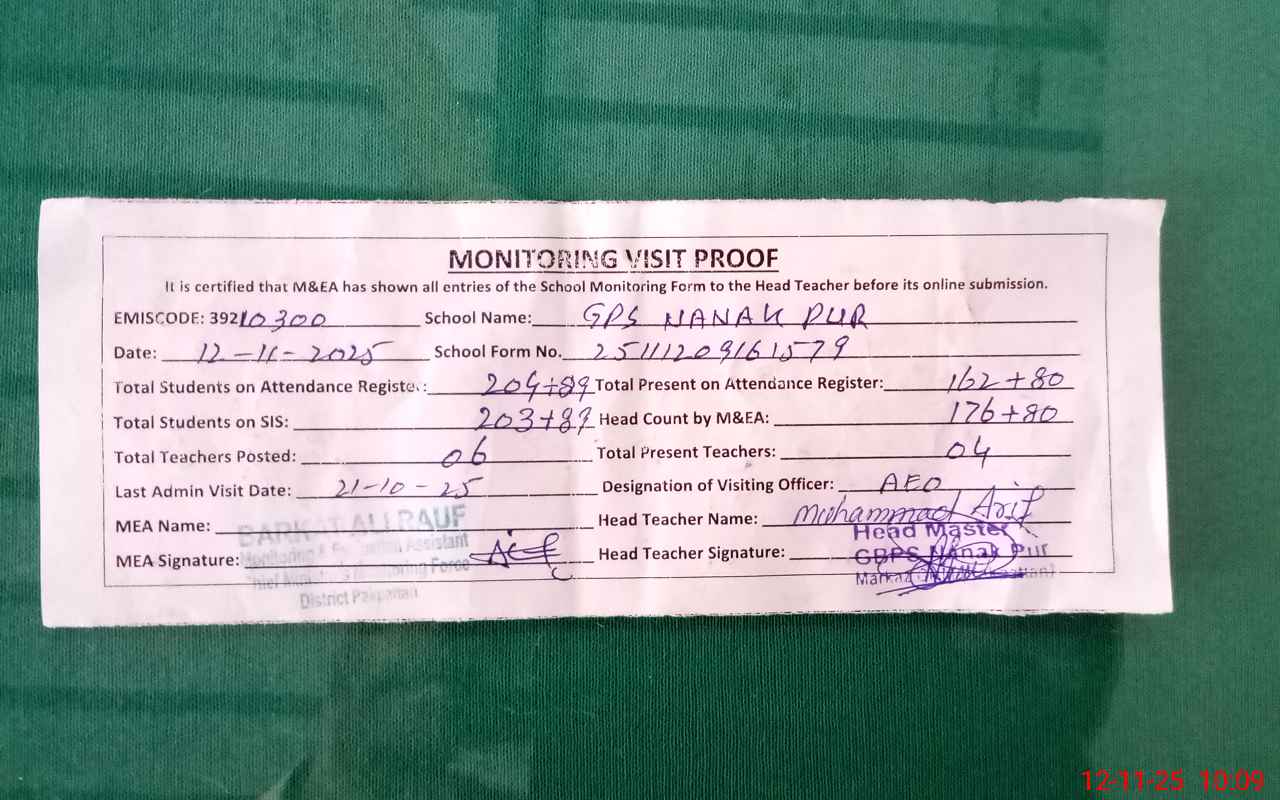 MONITORING VISIT PROOF
It is certified that M&EA has shown all entries of the School Monitoring Form to the Head Teacher before its online submission.
EMISCODE: 39210300 School Name: GPS NANAK PUR
Date: 12-11-2025 School Form No. 25111209161579
Total Students on Attendance Register: 204+89 Total Present on Attendance Register: 162+80
Total Students on SIS: 203+89 Head Count by M&EA: 176+80
Total Teachers Posted: 06 Total Present Teachers: 04
Last Admin Visit Date: 21-10-25 Designation of Visiting Officer: AEO
MEA Name: BARKAT ALI RAUF Head Teacher Name: Muhammad Arif
MEA Signature: Monitoring & Evaluation Assistant Head Teacher Signature: Head Master
Chief Minister's Monitoring Force GBPS Nanak Pur
District Pakpattan Markaz
12-11-25 10:09